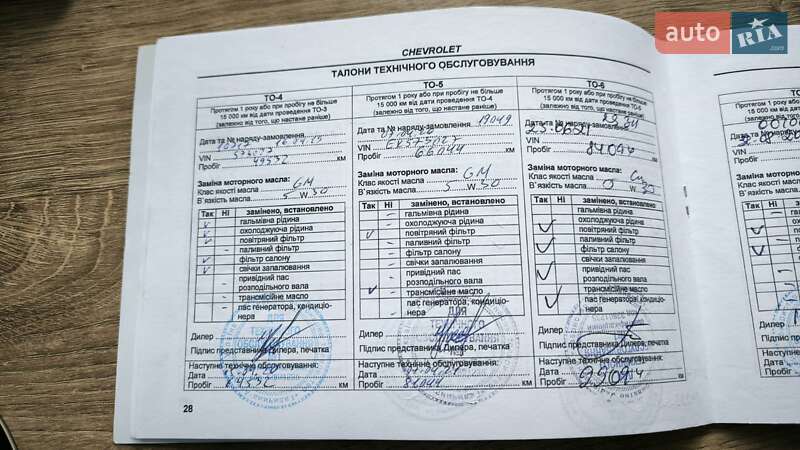 auto RIA
.com
CHEVROLET
ТАЛОНИ ТЕХНІЧНОГО ОБСЛУГОВУВАННЯ
ТО-4
Протягом 1 року або при пробігу не більше
15 000 км від дати проведення ТО-3
(залежно від того, що настане раніше)
Дата та № наряду-замовлення
VIN
Пробіг 49532 км
Заміна моторного масла: GM
Клас якості масла
В`язкість масла 5 W 30
Так Ні замінено, встановлено
гальмівна рідина
охолоджуюча рідина
повітряний фільтр
паливний фільтр
фільтр салону
свічки запалювання
привідний пас
розподільного вала
трансмісійне масло
пас генератора, кондиціо-
нера
Дилер
Підпис представника Дилера, печатка
Наступне технічне обслуговування:
Дата
Пробіг 64532 км
ТО-5
Протягом 1 року або при пробігу не більше
15 000 км від дати проведення ТО-4
(залежно від того, що настане раніше)
Дата та № наряду-замовлення
VIN
Пробіг 66044 км
Заміна моторного масла: GM
Клас якості масла
В`язкість масла 5 W 30
Так Ні замінено, встановлено
гальмівна рідина
охолоджуюча рідина
повітряний фільтр
паливний фільтр
фільтр салону
свічки запалювання
привідний пас
розподільного вала
трансмісійне масло
пас генератора, кондиціо-
нера
Дилер
Підпис представника Дилера, печатка
Наступне технічне обслуговування:
Дата
Пробіг 81044 км
ТО-6
Протягом 1 року або при пробігу не більше
15 000 км від дати проведення ТО-5
(залежно від того, що настане раніше)
Дата та № наряду-замовлення
VIN
Пробіг 84094 км
Заміна моторного масла:
Клас якості масла
В`язкість масла 0 W 30
Так Ні замінено, встановлено
гальмівна рідина
охолоджуюча рідина
повітряний фільтр
паливний фільтр
фільтр салону
свічки запалювання
привідний пас
розподільного вала
трансмісійне масло
пас генератора, кондиціо-
нера
Дилер
Підпис представника Дилера, печатка
Наступне технічне обслуговування:
Дата
Пробіг 99094 км
28